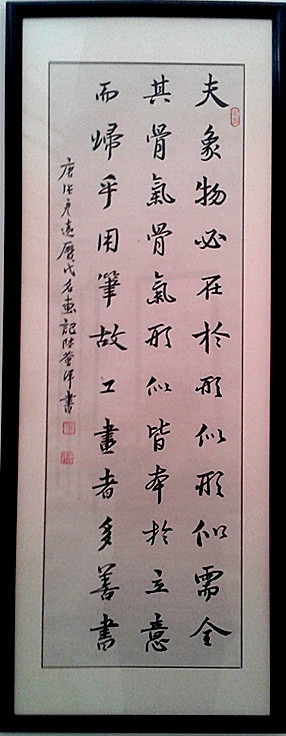 夫象物必在於形似形似需全
其骨氣骨氣形似皆本於立意
而歸乎用筆故工畫者多善書
唐張彥遠歷代名畫記陸萱萍書